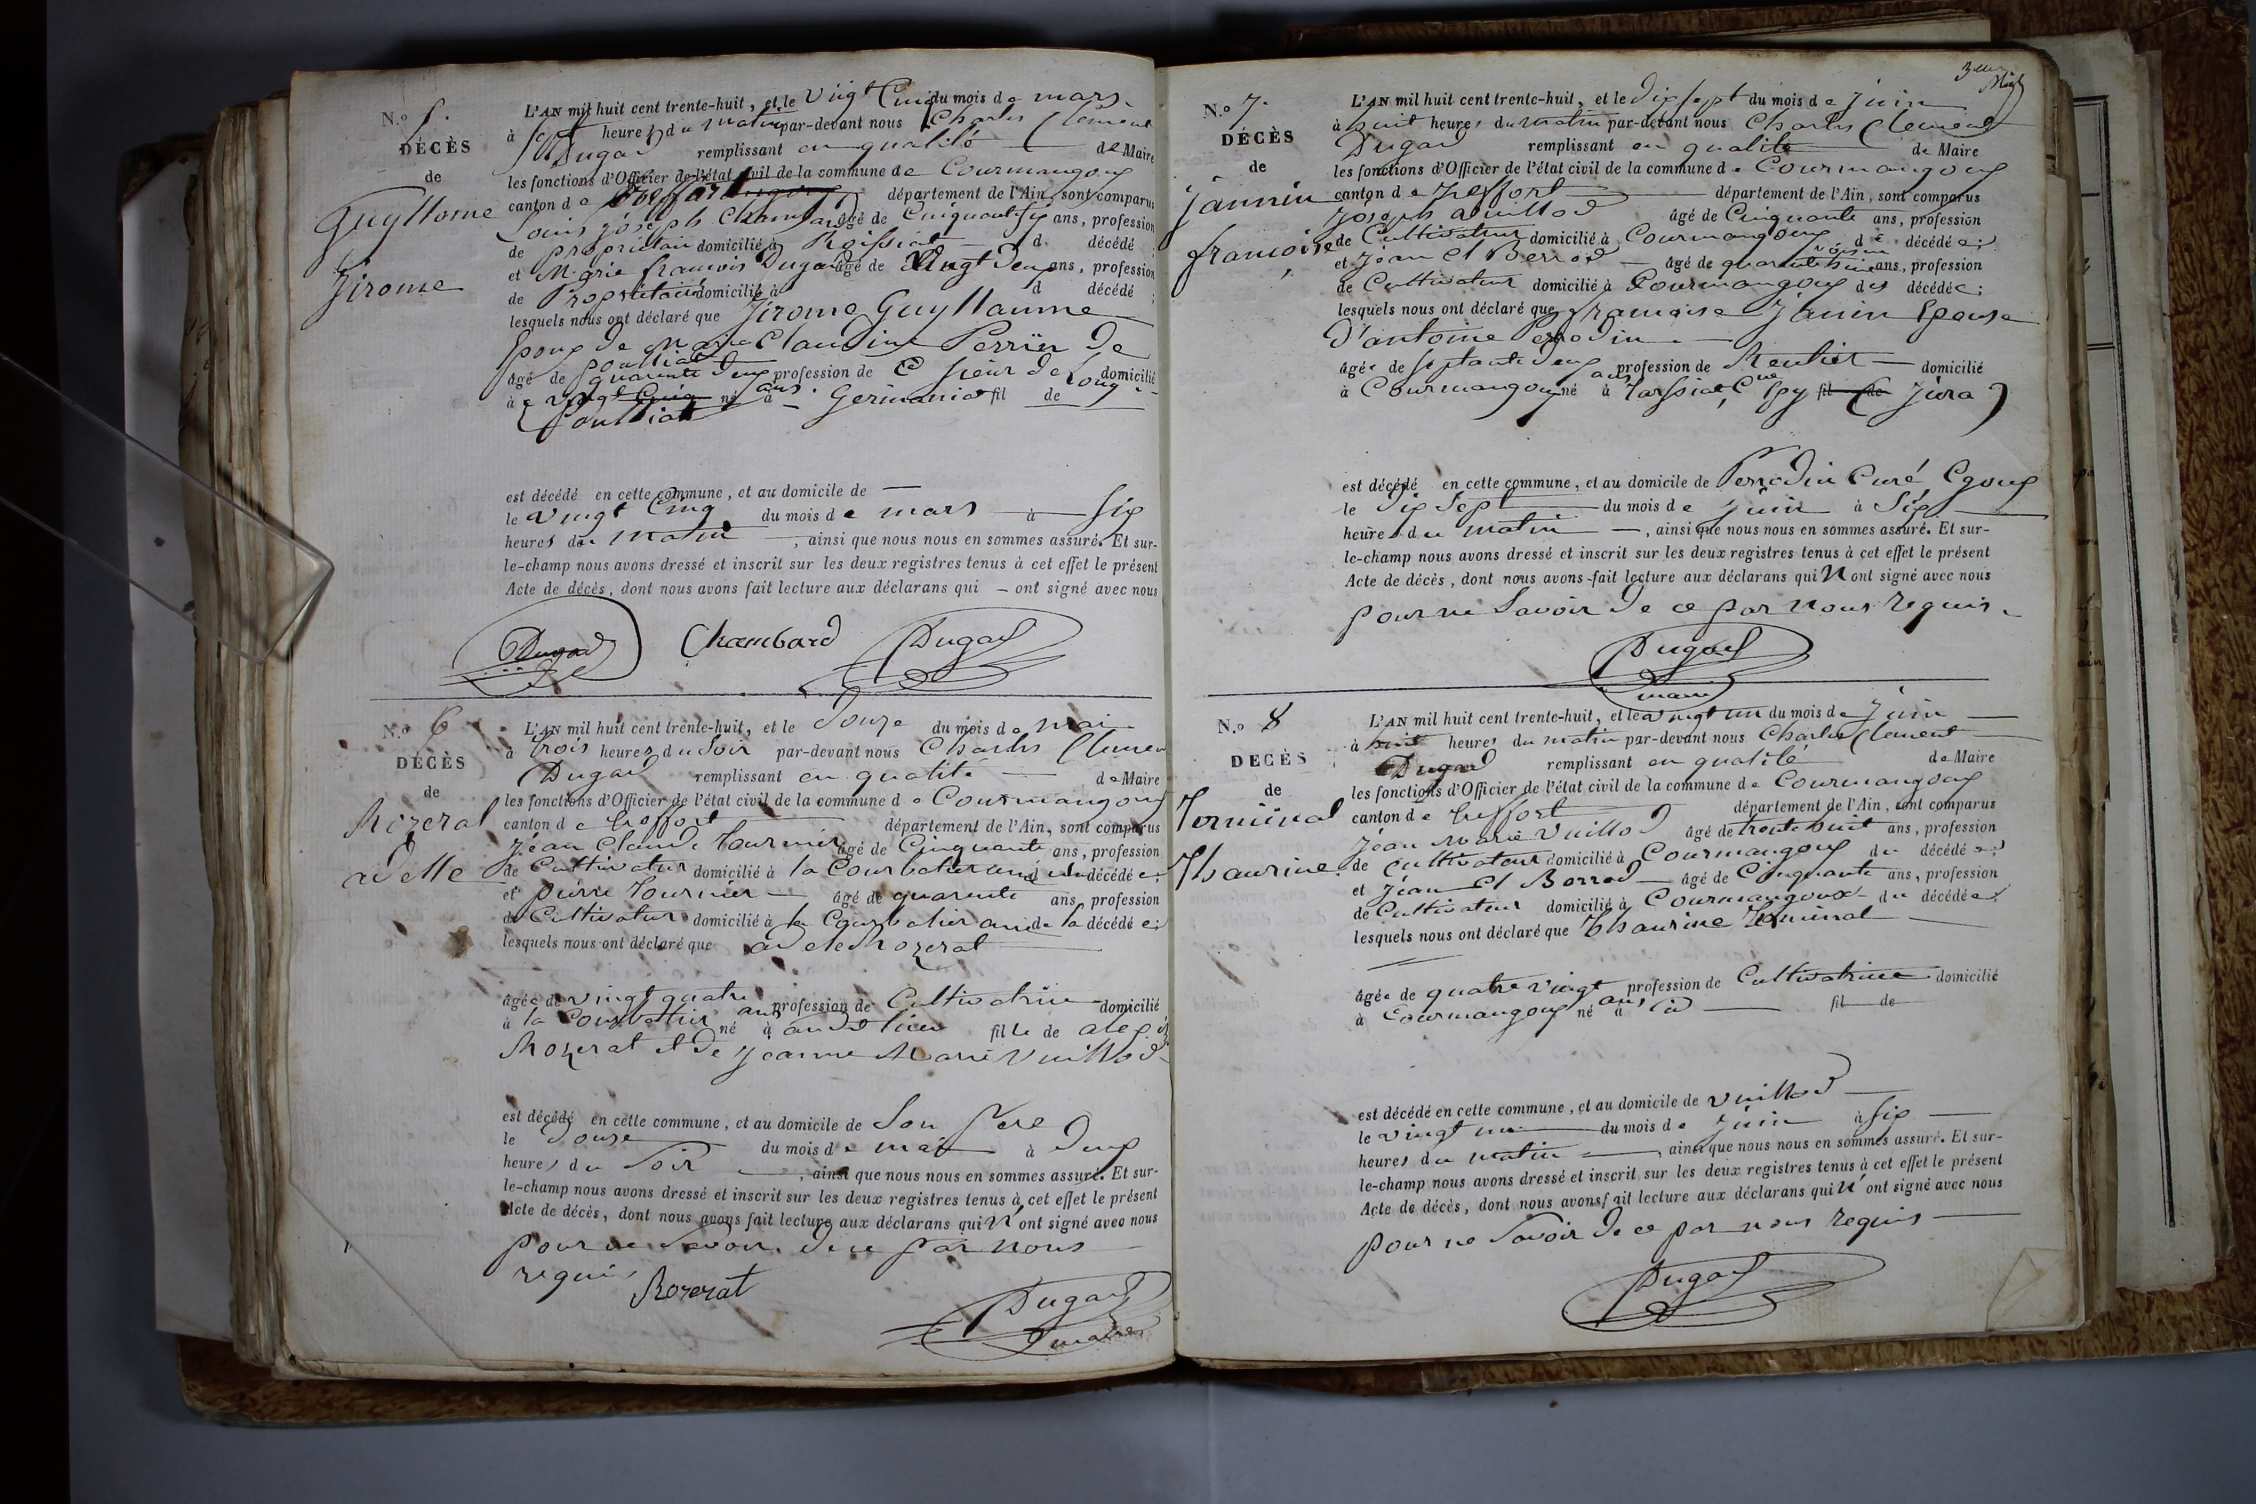 N.o 5.
DÉCÈS
de
Guyllome
Jirome
L'AN mil huit cent trente-huit, et le vingt Cinq du mois de mars
à sept heures du matin par-devant nous Charles Clement
Dugad remplissant en qualité de Maire
les fonctions d'Officier de l'état civil de la commune de Courmangoux
canton de treffort département de l'Ain, sont comparus
Louis joseph Chambard âgé de Cinquant six ans, profession
de propriétair domicilié à Roissiat d décédé ;
et Marie francois Dugad âgé de vingt deux ans, profession
de Propriétair domicilié à d décédé ;
lesquels nous ont déclaré que Jirome Guyllaume
Epoux de Marie Claudine Perrin de
pouillat
âgé de quarente deux ans profession de domicilié
à né à Germaniat fil de
Pouilliat
est décédé en cette commune, et au domicile de
le vingt Cinq du mois de mars à six
heures du matin, ainsi que nous nous en sommes assuré. Et sur-
le-champ nous avons dressé et inscrit sur les deux registres tenus à cet effet le présent
Acte de décès, dont nous avons fait lecture aux déclarans qui ont signé avec nous
Dugad Chambard Dugad
N.o 6
DÉCÈS
de
Rozerat
adelle
L'AN mil huit cent trente-huit, et le Douze du mois de mai
à trois heures du soir par-devant nous Charles Clement
Dugad remplissant en qualité de Maire
les fonctions d'Officier de l'état civil de la commune de Courmangoux
canton de treffort département de l'Ain, sont comparus
Jean Claude tournier âgé de Cinquante ans, profession
de Cultivatur domicilié à la Courbatiere ami de la décédée;
et pierre tournier âgé de quarente ans, profession
de Cultivatur domicilié à la Courbatier ami de la décédée;
lesquels nous ont déclaré que adele Rozerat
âgée de vingt quatre ans profession de Cultivatrice domicilié
à la Courbattier né à au dt lieu fille de alexis
Rozerat et de jeanne Marie Vuillod
est décédé en cette commune, et au domicile de Son Pere
le Douze du mois de mai à Deux
heures du Soir, ainsi que nous nous en sommes assuré. Et sur-
le-champ nous avons dressé et inscrit sur les deux registres tenus à cet effet le présent
Acte de décès, dont nous avons fait lecture aux déclarans qui N'ont signé avec nous
pour ne Savoir De ce par nous
requis
Rozerat
Dugad
maire
N.o 7.
DÉCÈS
de
jannin
francoise
L'AN mil huit cent trente-huit, et le Dix sept du mois de juin
à huit heures du matin par-devant nous Charles Clement
Dugad remplissant en qualité de Maire
les fonctions d'Officier de l'état civil de la commune de Courmangoux
canton de treffort département de l'Ain, sont comparus
joseph Vuillod âgé de Cinquante ans, profession
de Cultivateur domicilié à Courmangoux d décédée;
voisin
et jean Cl Berrod âgé de quarente huit ans, profession
de Cultivateur domicilié à Courmangoux des décédée;
lesquels nous ont déclaré que francoise Janin Epouse
D'antoine Perrodin
âgée de septante deux ans profession de Rentier domicilié
à Courmangoux né à tarssiat Cne Epy fil de jura)
est décédé en cette commune, et au domicile de Perrodin Curé Cgoux
le Dix Sept du mois de juin à Six
heures du matin, ainsi que nous nous en sommes assuré. Et sur-
le-champ nous avons dressé et inscrit sur les deux registres tenus à cet effet le présent
Acte de décès, dont nous avons fait lecture aux déclarans qui N ont signé avec nous
pour ne Savoir De ce par nous requis
Dugad
maire
N.o 8
DÉCÈS
de
Terminal
Thaurine
L'AN mil huit cent trente-huit, et le vingt un du mois de juin
à huit heures du matin par-devant nous Charles Clement
Dugad remplissant en qualité de Maire
les fonctions d'Officier de l'état civil de la commune de Courmangoux
canton de treffort département de l'Ain, sont comparus
jean Marie Vuillod âgé de trente huit ans, profession
de Cultivateur domicilié à Courmangoux du décédée;
et jean Cl Borrod âgé de Cinquante ans, profession
de Cultivateur domicilié à Courmangoux du décédée;
lesquels nous ont déclaré que Thaurine Terminal
âgée de quatre vingt ans profession de Cultivatrice domicilié
à Courmangoux né à id fil de
est décédé en cette commune, et au domicile de vuillod
le vingt un du mois de juin à six
heures du matin, ainsi que nous nous en sommes assuré. Et sur-
le-champ nous avons dressé et inscrit sur les deux registres tenus à cet effet le présent
Acte de décès, dont nous avons fait lecture aux déclarans qui N'ont signé avec nous
pour ne Savoir De ce par nous requis
Dugad